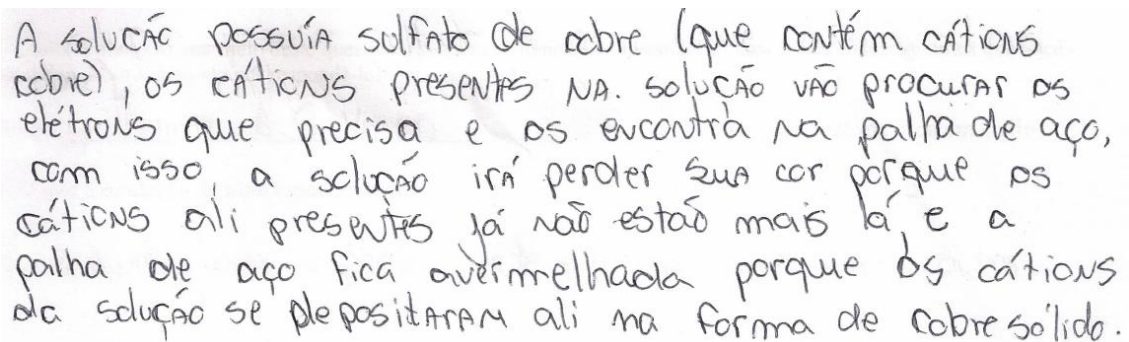 A solução possuía sulfato de cobre (que contém cátions
cobre), os cátions presentes na. solução vão procurar os
elétrons que precisa e os encontra na palha de aço,
com isso, a solução irá perder sua cor porque os
cátions ali presentes já não estão mais lá, e a
palha de aço fica avermelhada porque os cátions
da solução se depositaram ali na forma de cobre sólido.